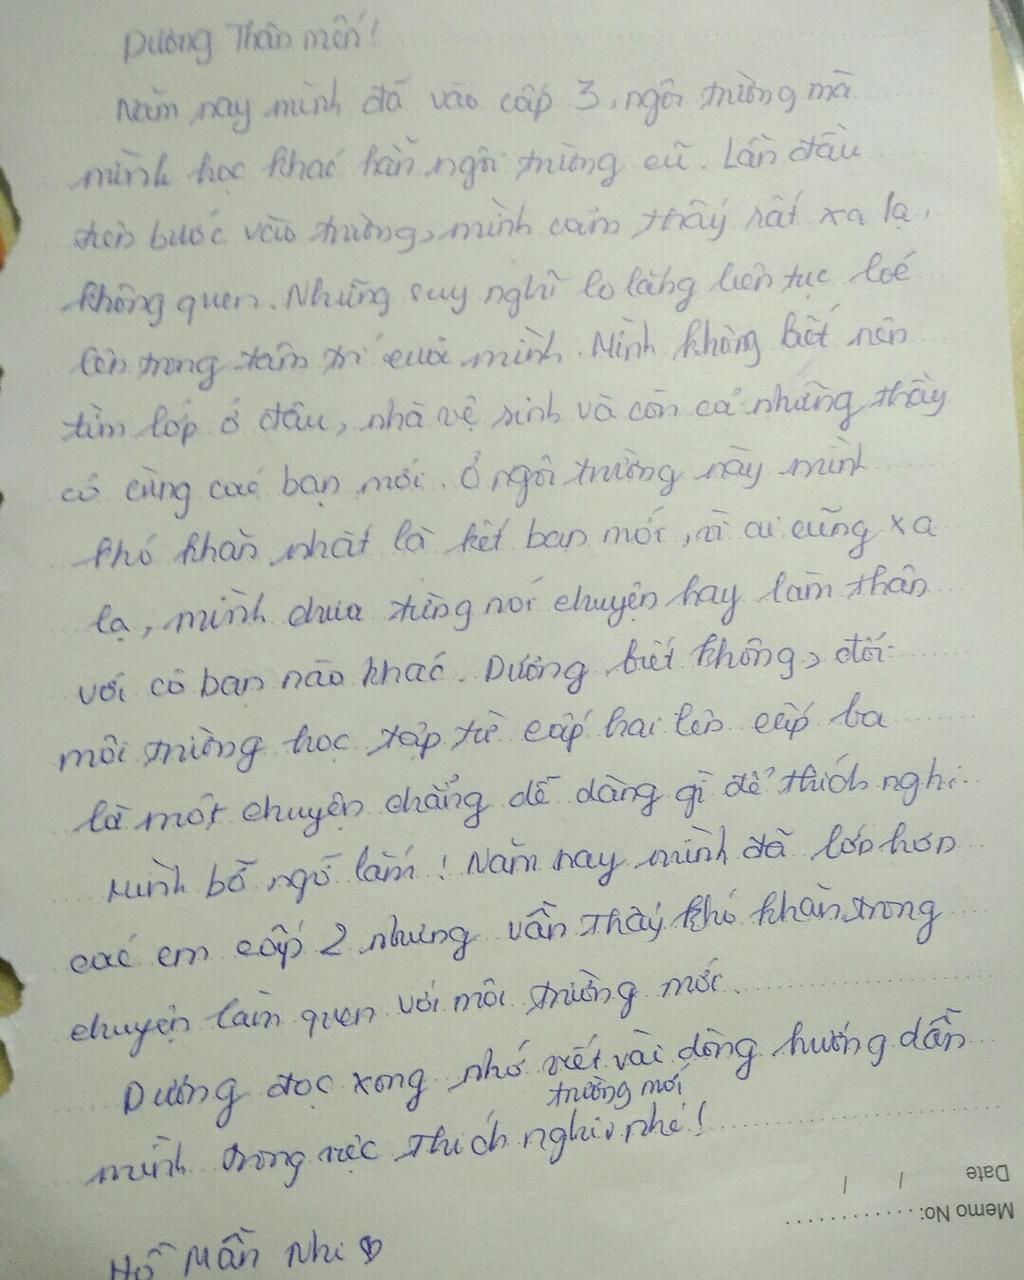 Dương Thân mến!
Năm nay mình đã vào cấp 3, ngôi trường mà
mình học khác hẳn ngôi trường cũ. Lần đầu
tiên bước vào trường, mình cảm thấy rất xa lạ,
không quen. Những suy nghĩ lo lắng liên tục loé
lên trong tâm trí của mình. Mình không biết nên
tìm lớp ở đâu, nhà vệ sinh và còn cả những thầy
cô cùng các bạn mới. Ở ngôi trường này mình
khó khăn nhất là kết bạn mới, vì ai cũng xa
lạ, mình chưa từng nói chuyện hay làm thân
với cô bạn nào khác. Dương biết không, đổi
môi trường học tập từ cấp hai lên cấp ba
là một chuyện chẳng dễ dàng gì để thích nghi.
Mình bỡ ngỡ lắm! Năm nay mình đã lớn hơn
các em cấp 2 nhưng vẫn thấy khó khăn trong
chuyện làm quen với môi trường mới.
Dương đọc xong nhớ viết vài dòng hướng dẫn
trường mới
mình trong việc thích nghi nhé!
Hồ Mẫn Nhi
Date / /
Memo No: